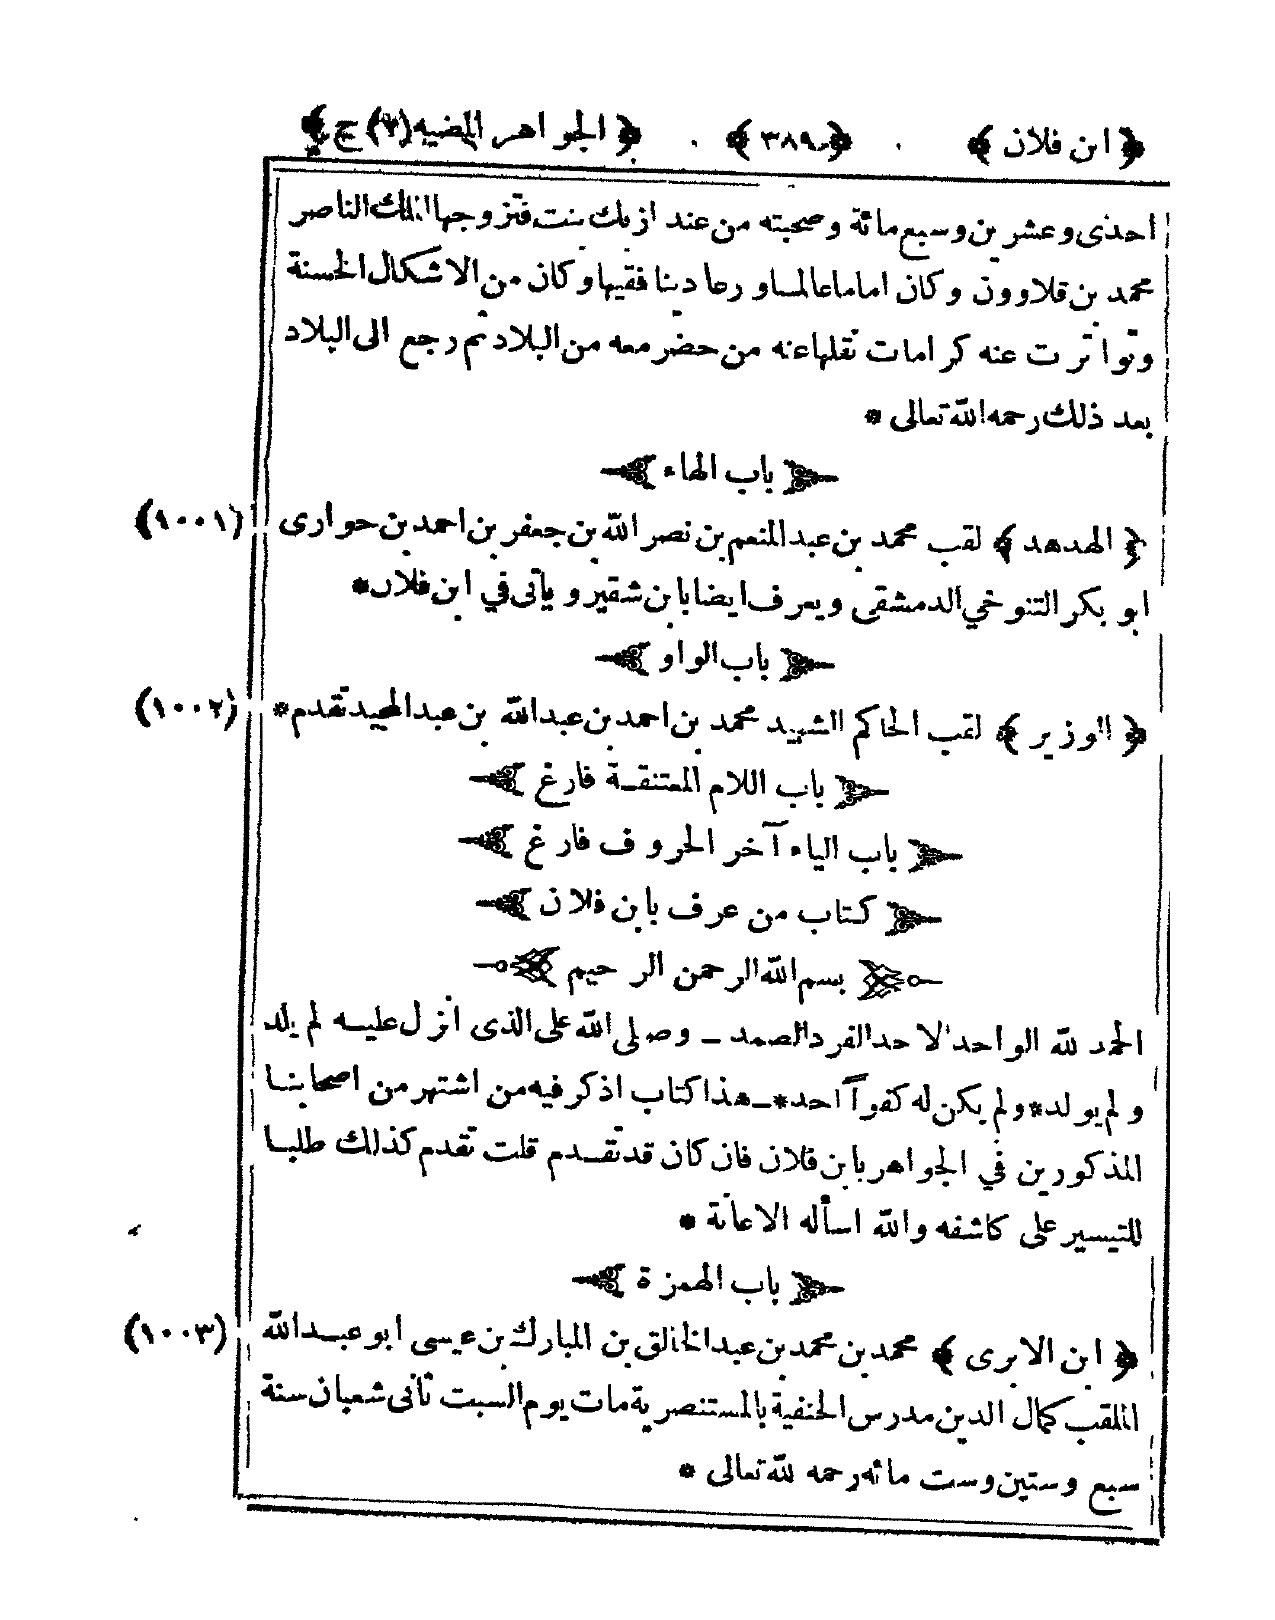 ﴿ ابن فلان ﴾ ﴿ ٣٨٩ ﴾ ﴿ الجواهر المضيه (٢) ج ﴾
احدى وعشرين وسبع مائة وصحبته من عند ازبك بنت فتزوجها الملك الناصر
محمد بن قلاوون وكان اماما عالما ورعا دينا فقيها وكان من الاشكال الحسنة
وتواترت عنه كرامات تقلها عنه من حضر معه من البلاد ثم رجع الى البلاد
بعد ذلك رحمه الله تعالى *
باب الهاء
﴿ الهدهد ﴾ لقب محمد بن عبد المنعم بن نصر الله بن جعفر بن احمد بن حوارى (١٠٠١)
ابو بكر التنوخي الدمشقى ويعرف ايضا بابن شقير و يأتى في ابن فلان *
باب الواو
﴿ الوزير ﴾ لقب الحاكم الشهيد محمد بن احمد بن عبد الله بن عبد المجيد تقدم * (١٠٠٢)
باب اللام المعتنقة فارغ
باب الياء آخر الحروف فارغ
كتاب من عرف بابن فلان
بسم الله الرحمن الرحيم
الحمد لله الواحد الاحد الفرد الصمد ـ وصلى الله على الذى انزل عليه لم يلد
ولم يولد * ولم يكن له كفوآ احد * ـ هذا كتاب اذكر فيه من اشتهر من اصحابنا
المذكورين في الجواهر بابن فلان فان كان قد تقدم قلت تقدم كذلك طلبا
للتيسير على كاشفه والله اسأله الاعانة *
باب الهمزة
﴿ ابن الابرى ﴾ محمد بن محمد بن عبد الخالق بن المبارك بن عيسى ابو عبد الله (١٠٠٣)
الملقب كمال الدين مدرس الحنفية بالمستنصرية مات يوم السبت ثانى شعبان سنة
سبع وستين وست مائه رحمه لله تعالى *